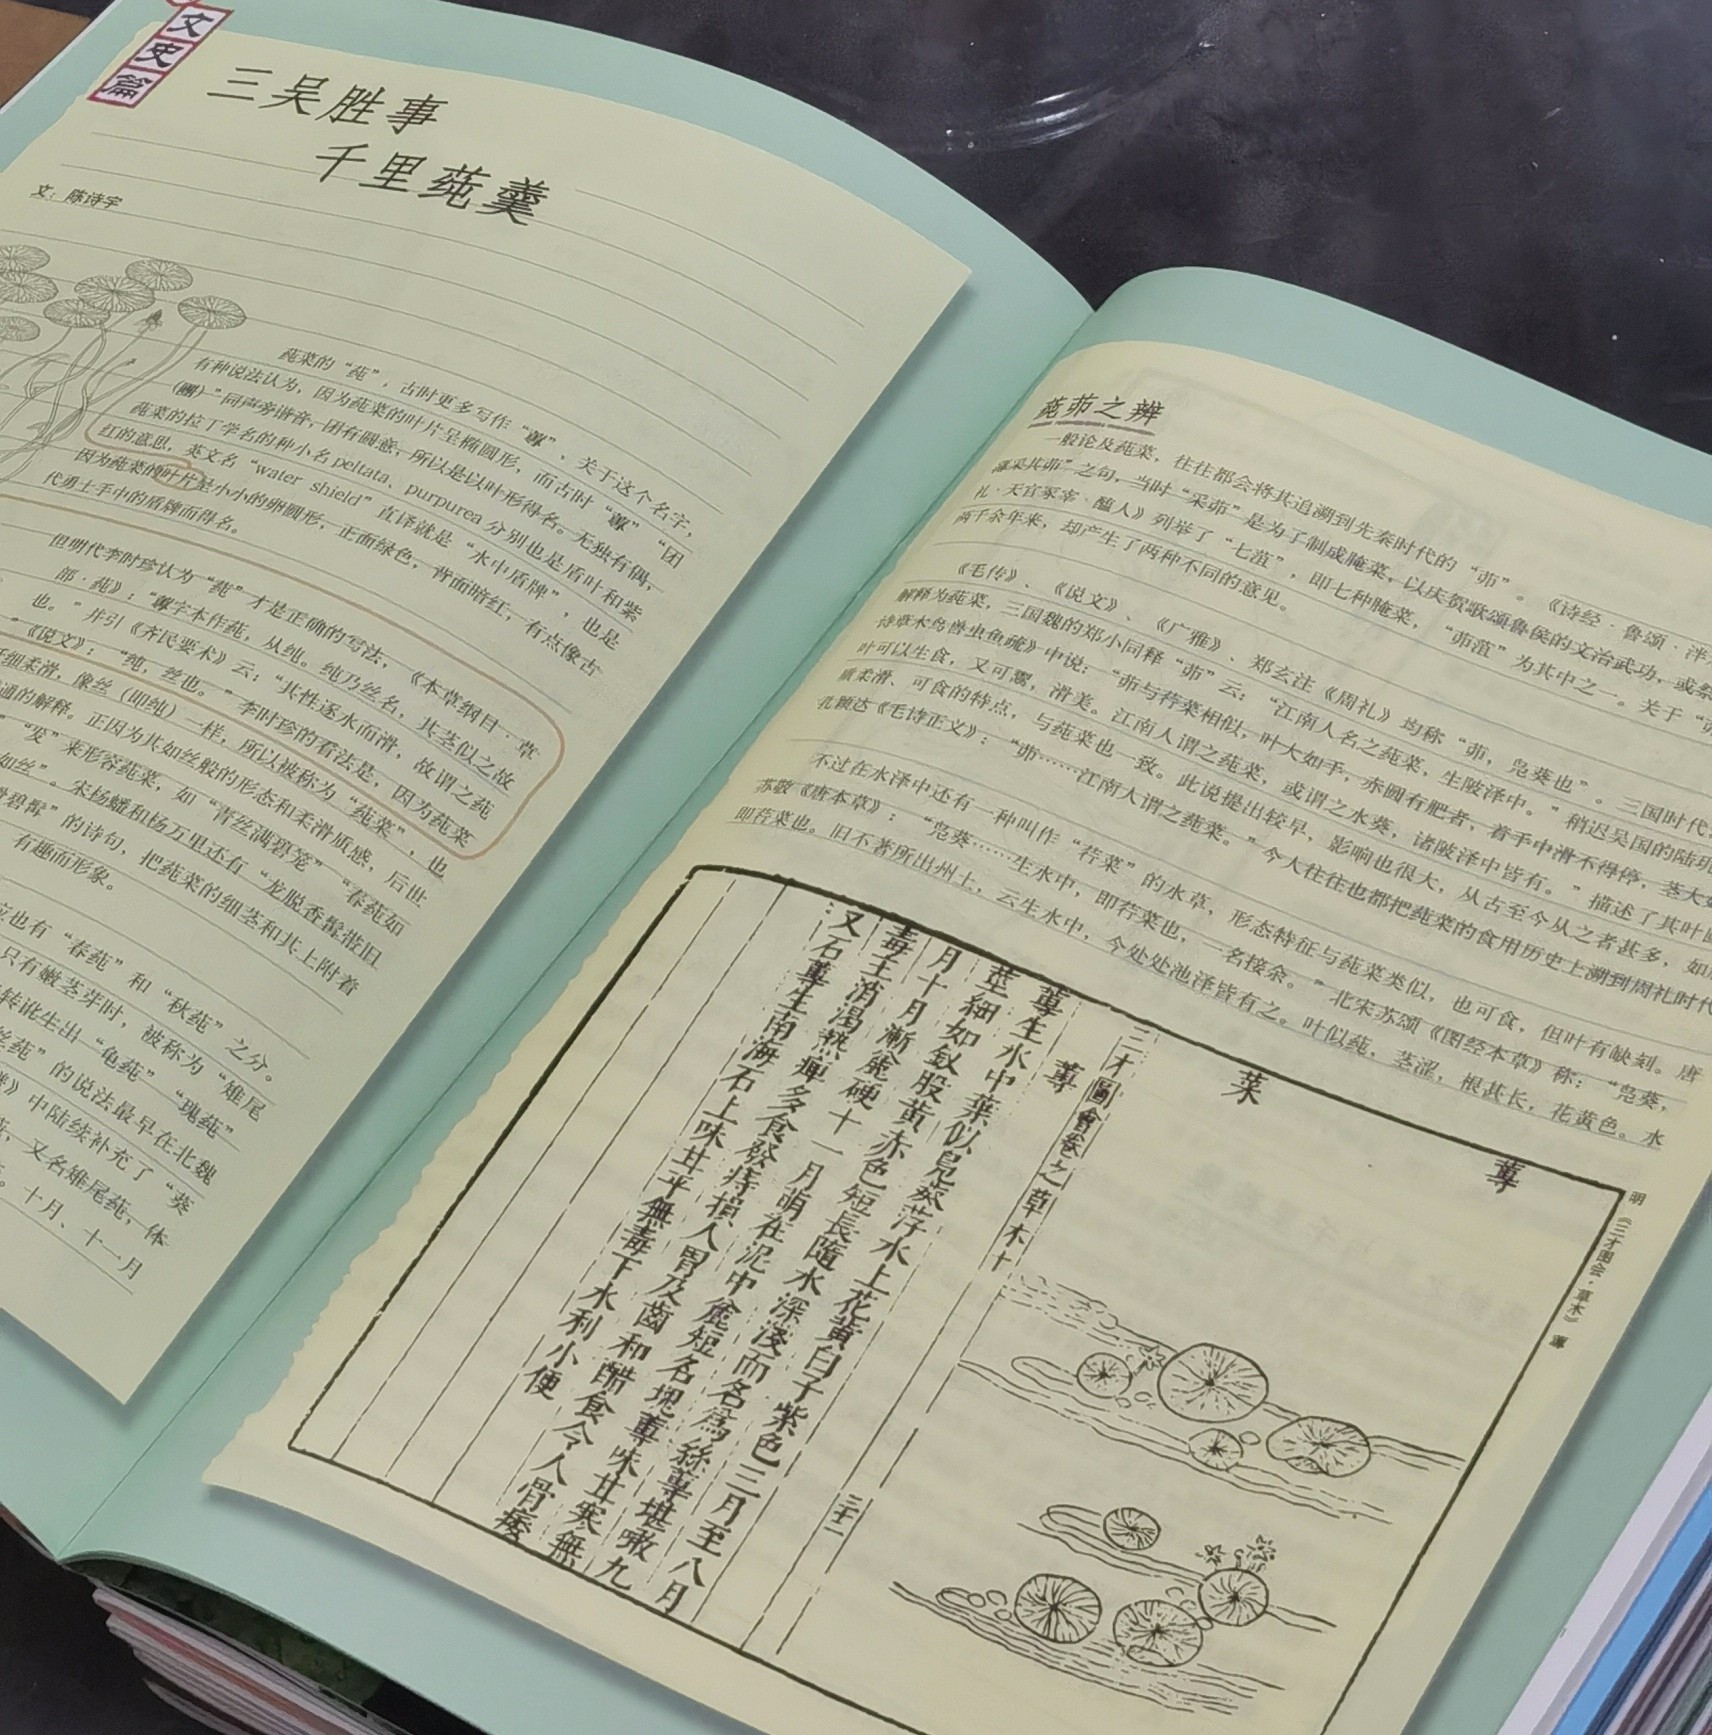 文史篇
三吴胜事
千里莼羹
文：陈诗宇
莼菜的“莼”，古时更多写作“蓴”，关于这个名字，
有种说法认为，因为莼菜的叶片呈椭圆形，而古时“蓴”“团
（團）”同声旁谐音，团有圆意，所以是以叶形得名。无独有偶，
莼菜的拉丁学名的种小名 peltata、purpurea 分别也是盾叶和紫
红的意思，英文名“water shield”直译就是“水中盾牌”，也是
因为莼菜的叶片呈小小的卵圆形，正面绿色，背面暗红，有点像古
代勇士手中的盾牌而得名。
但明代李时珍认为“莼”才是正确的写法，《本草纲目·草
部·莼》：“蓴字本作莼，从纯。纯乃丝名，其茎似之故
也。”并引《齐民要术》云：“其性逐水而滑，故谓之莼
”《说文》：“纯，丝也。”李时珍的看法是，因为莼菜
细柔滑，像丝（即纯）一样，所以被称为“莼菜”，也
通的解释。正因为其如丝般的形态和柔滑质感，后世
”“发”来形容莼菜，如“青丝满碧笼”“春莼如
如丝”。宋杨蟠和杨万里还有“龙脱香髯带旧
滑碧髯”的诗句，把莼菜的细茎和其上附着
有趣而形象。
也有“春莼”和“秋莼”之分。
只有嫩茎芽时，被称为“雉尾
转讹生出“龟莼”“瑰莼”
丝莼”的说法最早在北魏
》中陆续补充了“葵
，又名雉尾莼，体
。十月、十一月
莼茆之辨
一般论及莼菜，往往都会将其追溯到先秦时代的“茆”。《诗经·鲁颂·泮
薄采其茆”之句，当时“采茆”是为了制成腌菜，以庆贺歌颂鲁侯的文治武功，或祭
礼·天官冢宰·醢人》列举了“七菹”，即七种腌菜，“茆菹”为其中之一。关于“茆
两千余年来，却产生了两种不同的意见。
《毛传》、《说文》、《广雅》、郑玄注《周礼》均称“茆，凫葵也”。三国时代
解释为莼菜，三国魏的郑小同释“茆”云：“江南人名之莼菜，生陂泽中。”稍迟吴国的陆玑
诗草木鸟兽虫鱼疏》中说：“茆与荇菜相似，叶大如手，赤圆有肥者，着手中滑不得停，茎大如
叶可以生食，又可鬻，滑美。江南人谓之莼菜，或谓之水葵，诸陂泽中皆有。”描述了其叶圆
质柔滑、可食的特点，与莼菜也一致。此说提出较早，影响也很大，从古至今从之者甚多，如
孔颖达《毛诗正义》：“茆……江南人谓之莼菜。”今人往往也都把莼菜的食用历史上溯到周礼时代
不过在水泽中还有一种叫作“荇菜”的水草，形态特征与莼菜类似，也可食，但叶有缺刻。唐
苏敬《唐本草》：“凫葵……生水中，即荇菜也，一名接余。”北宋苏颂《图经本草》称：“凫葵，
即荇菜也。旧不著所出州土，云生水中，今处处池泽皆有之。叶似莼，茎涩，根甚长，花黄色。水
明 《三才图会·草木》 蓴
蓴
菜
三才圖會卷之草木十
三十一
蓴
蓴生水中葉似鳬葵浮水上花黃白子紫色三月至八月
莖細如釵股黃赤色短長隨水深淺而名爲絲蓴堪噉九
月十月漸麄硬十一月萌在泥中麄短名塊蓴味甘寒無
毒主消渴熱痺多食發痔損人胃及齒和醋食令人骨痿
又石蓴生南海石上味甘平無毒下水利小便